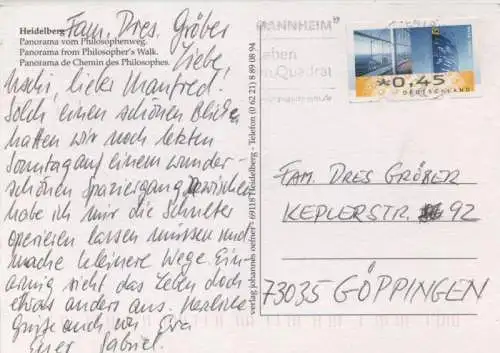 Heidelberg
Panorama vom Philosophenweg.
Panorama from Philosopher's Walk.
Panorama de Chemin des Philosophes.
Fam. Dres. Gröber
Liebe
Uschi, lieber Manfred!
Solch einen schönen Blick
hatten wir noch letzten
Sonntag auf einem wunder-
schönen Spaziergang. Inzwischen
habe ich mir die Schulter
operieren lassen müssen und
mache kleinere Wege. Ein-
armig sieht das Leben doch
etwas anders aus. Herzliche
Grüße auch von Eva
Euer Gabriel.
verlag johannes oefner · 69118 Heidelberg · Telefon (0 62 21) 8 89 08 94
MANNHEIM"
Leben
Quadrat
0,45
DEUTSCHLAND
FAM. DRES GRÖBER
KEPLERSTR. 92
73035 GÖPPINGEN